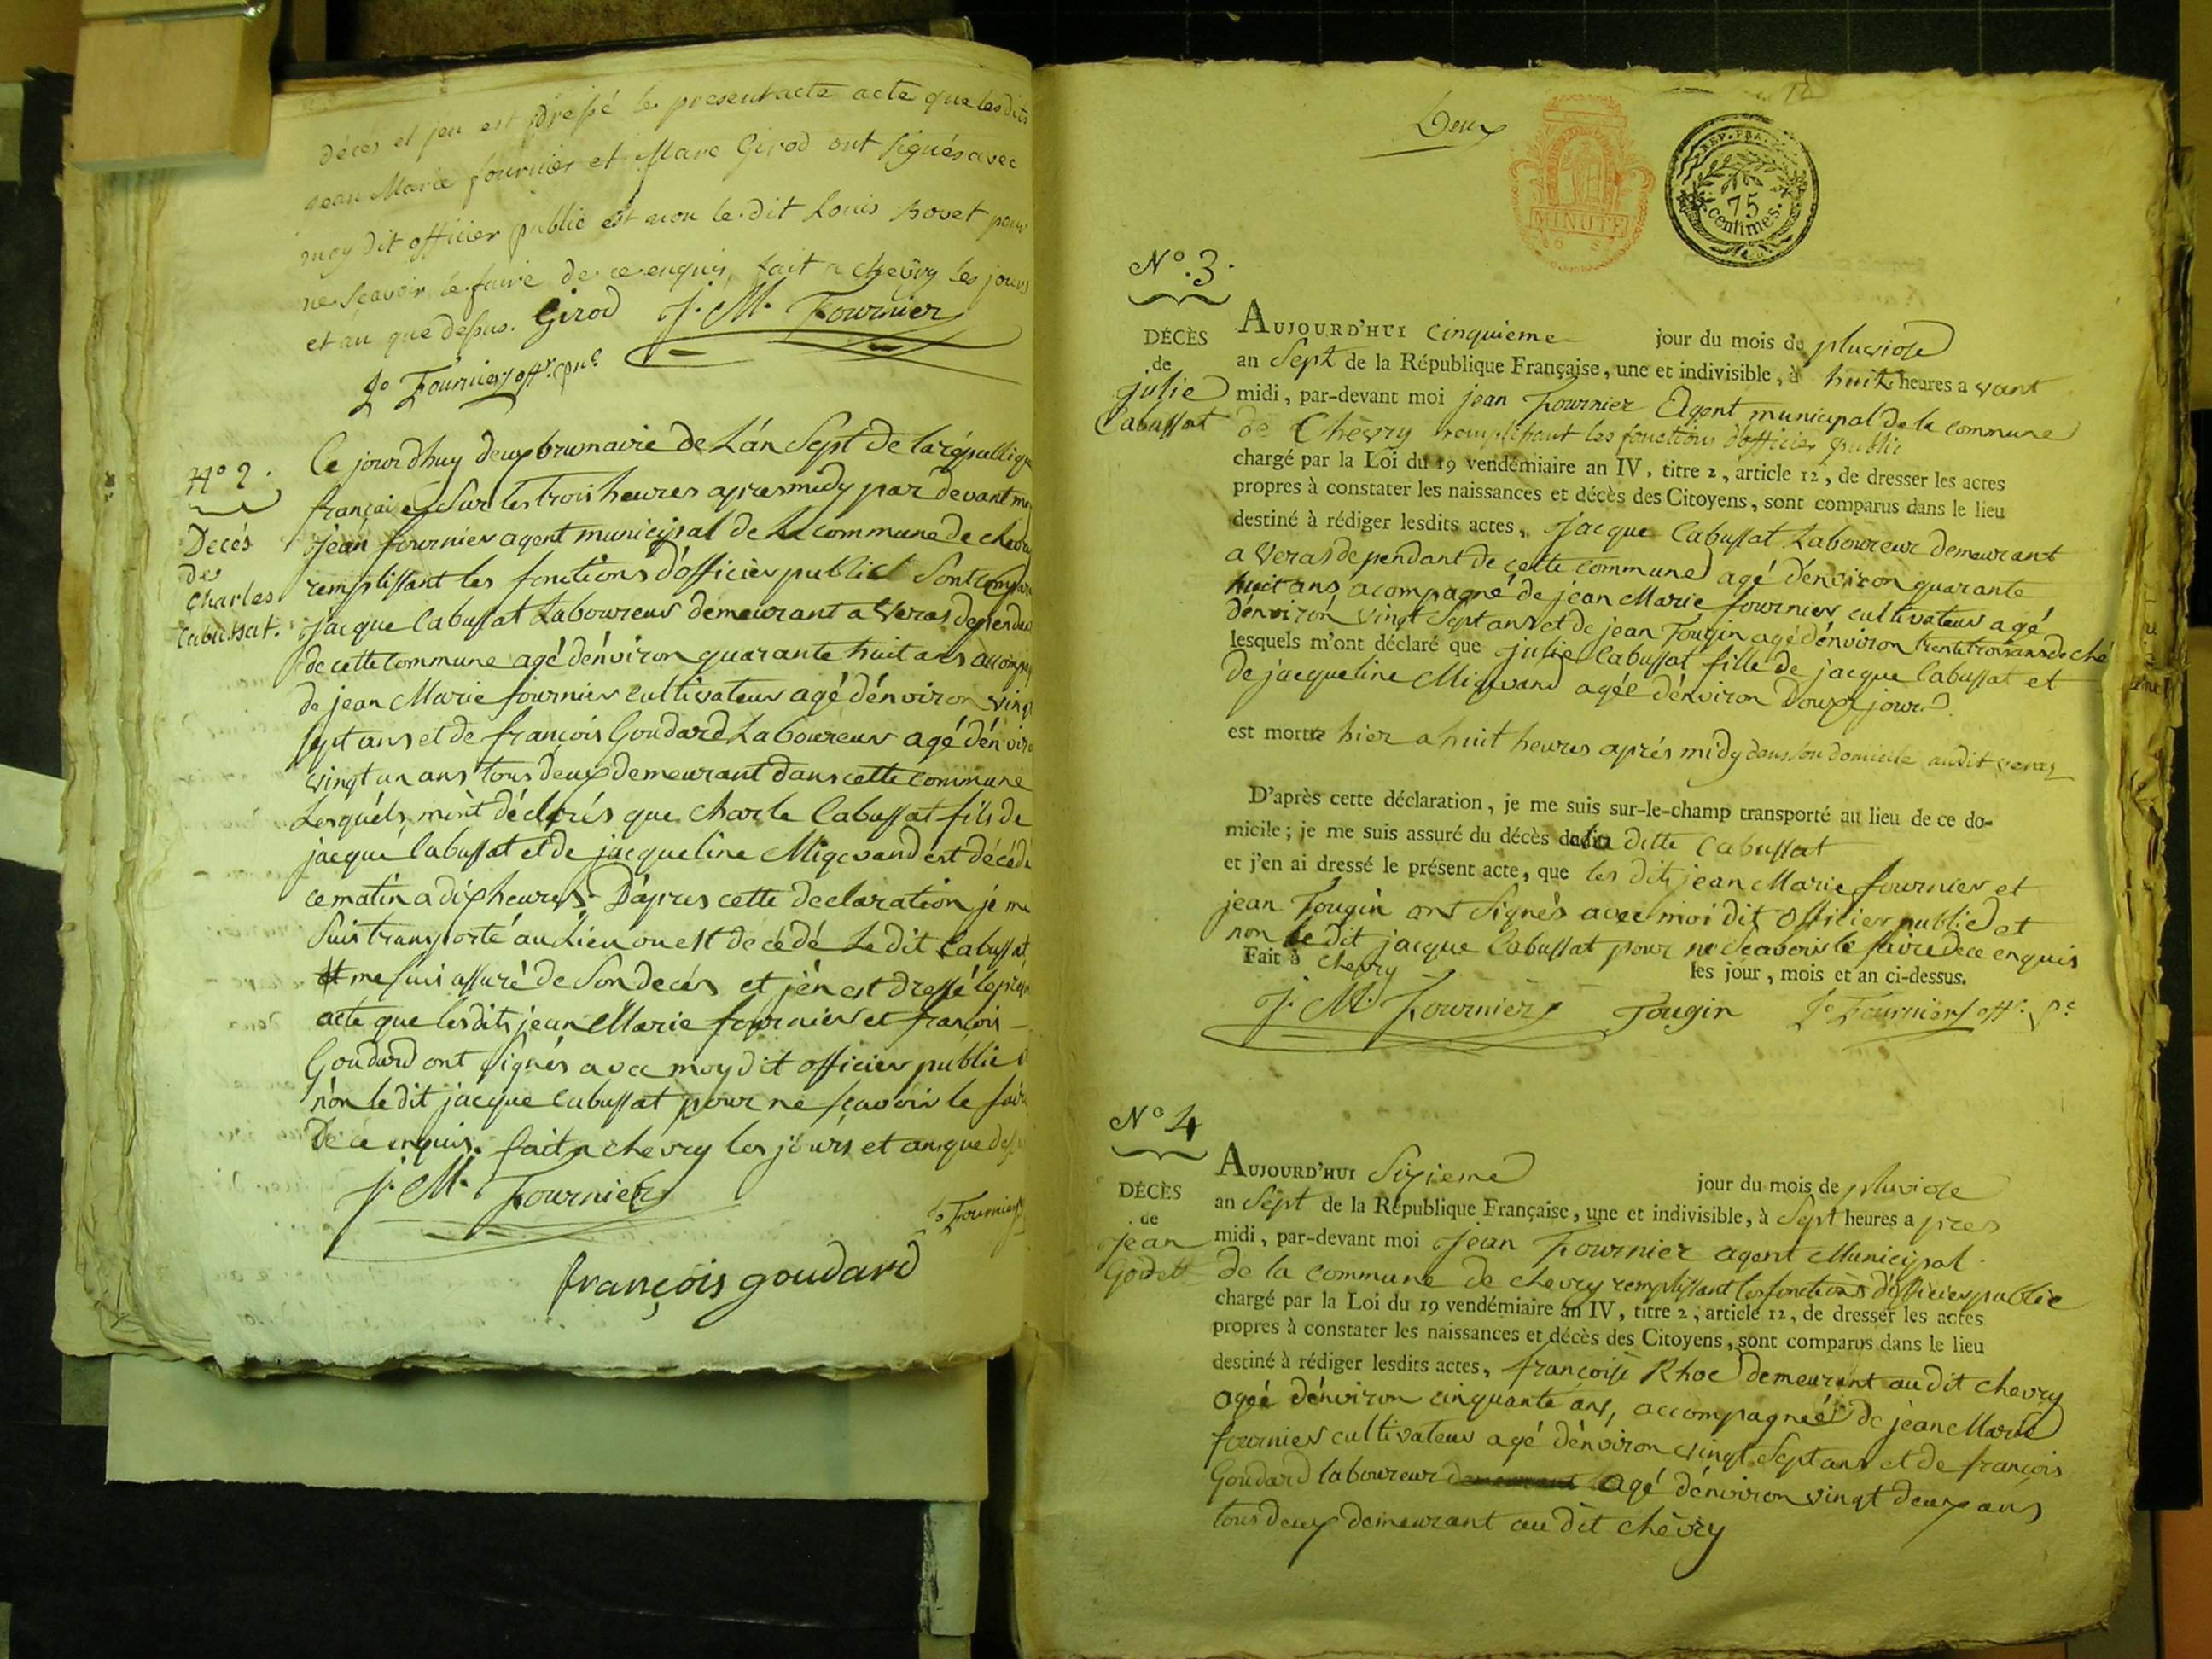 décés et jen est dressé le present acte acte que les dits
jean Marie fournier et Marc Girod ont signés avec
moy dit officier public et non le dit Louis bovet pour
ne sçavoir le faire de ce enquis, fait a chevry les jours
et an que dessus. Girod J. M. Fournier
Jn Fournier off. pu.
N° 2.
Decés
de
Charles
Cabussat.
Ce jourdhuy deux brumaire de L'án Sept de la républiqu
françai e Sur les trois heures apres midy par devant mo
jéan fournier agent municipal de La commune de chevr
remplissant les fonctions d'officier public Sont Compar
jacque Cabussat Laboureur demeurant a Veras dependa
de cette commune agé dénviron quarante huit ans accomp
de jean Marie fournier cultivateur agé dénviron vingt
sept ans et de françois Goudard Laboureur agé dénviro
vingt un ans tous deux demeurant dans cette commune
Lesquéls mont déclarés que Charle Cabussat fils de
jacque Cabussat et de jacqueline Migevand est décédé
ce matin a dix heures. D'ápres cette declaration jé me
Suis transporté au Lieu ou est décédé Le dit Cabussat
et me suis assuré de Son decés et j'én est dressé le prés
acte que les dits jean Marie fournier et françois
Goudard ont signés avec moy dit officier public e
nòn le dit jacque Cabussat pour ne sçavoir le fair
De ce enquis. fait a chévry les jóurs et an que des
J. M. Fournier
Jn Fournier
françois goudard
12
Deux
MINUTE
REP. FRA.
75
centimes.
N°. 3.
DÉCÈS
de
julie
Cabussat
AUJOURD'HUI Cinquieme jour du mois de pluviose
an Sept de la République Française, une et indivisible, à huit heures a vant
midi, par-devant moi jean Fournier Agent municipal de la commune
de Chèvry remplissant les fonctions d'officier public
chargé par la Loi du 19 vendémiaire an IV, titre 2, article 12, de dresser les actes
propres à constater les naissances et décès des Citoyens, sont comparus dans le lieu
destiné à rédiger lesdits actes, Jacque Cabussat Laboureur demeurant
a Veras dependant de cette commune agé dénviron quarante
huit ans, acompagné de jean Marie fournier cultivateur agé
dénviron vingt Sept ans et de jean Tougin agé dénviron trente trois ans de ché
lesquels m'ont déclaré que julie Cabussat fille de jacque Cabussat et
de jacqueline Migevand agéé dénviron Doux jours
est morte hier a huit heures aprés midy dans son domicile audit veraz
D'après cette déclaration, je me suis sur-le-champ transporté au lieu de ce do-
micile; je me suis assuré du décès de la ditte Cabussat
et j'en ai dressé le présent acte, que les dits jean Marie fournier et
jean Tougin ont Signés avec moi dit officier public et
non le dit jacque Cabussat pour ne Scavoir le faire de ce enquis
Fait à chevry les jour, mois et an ci-dessus.
J. M. Fournier Tougin Jn Fournier off. pc
N° 4
DÉCÈS
de
jean
Godett
AUJOURD'HUI Sixieme jour du mois de pluviose
an Sept de la République Française, une et indivisible, à Sept heures a pres
midi, par-devant moi jean Fournier agent Municipal
de la commune de chevry remplissant les fonctions d'officier public
chargé par la Loi du 19 vendémiaire an IV, titre 2, article 12, de dresser les actes
propres à constater les naissances et décès des Citoyens, sont comparus dans le lieu
destiné à rédiger lesdits actes, françoise Rhoe demeurant audit chevry
ageé dénviron cinquante ans, accompagneé de jean Marie
fournier cultivateur agé dénviron vingt Sept ans et de françois
Goudard laboureur agé dénviron vingt deux ans
tous deux demeurant au dit chévry